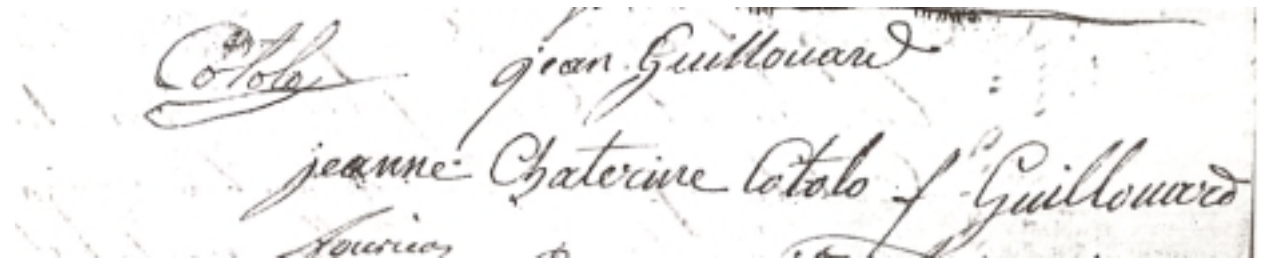 Cotolo jean Guillouard
jeanne Chaterine Cotolo f Guillouard